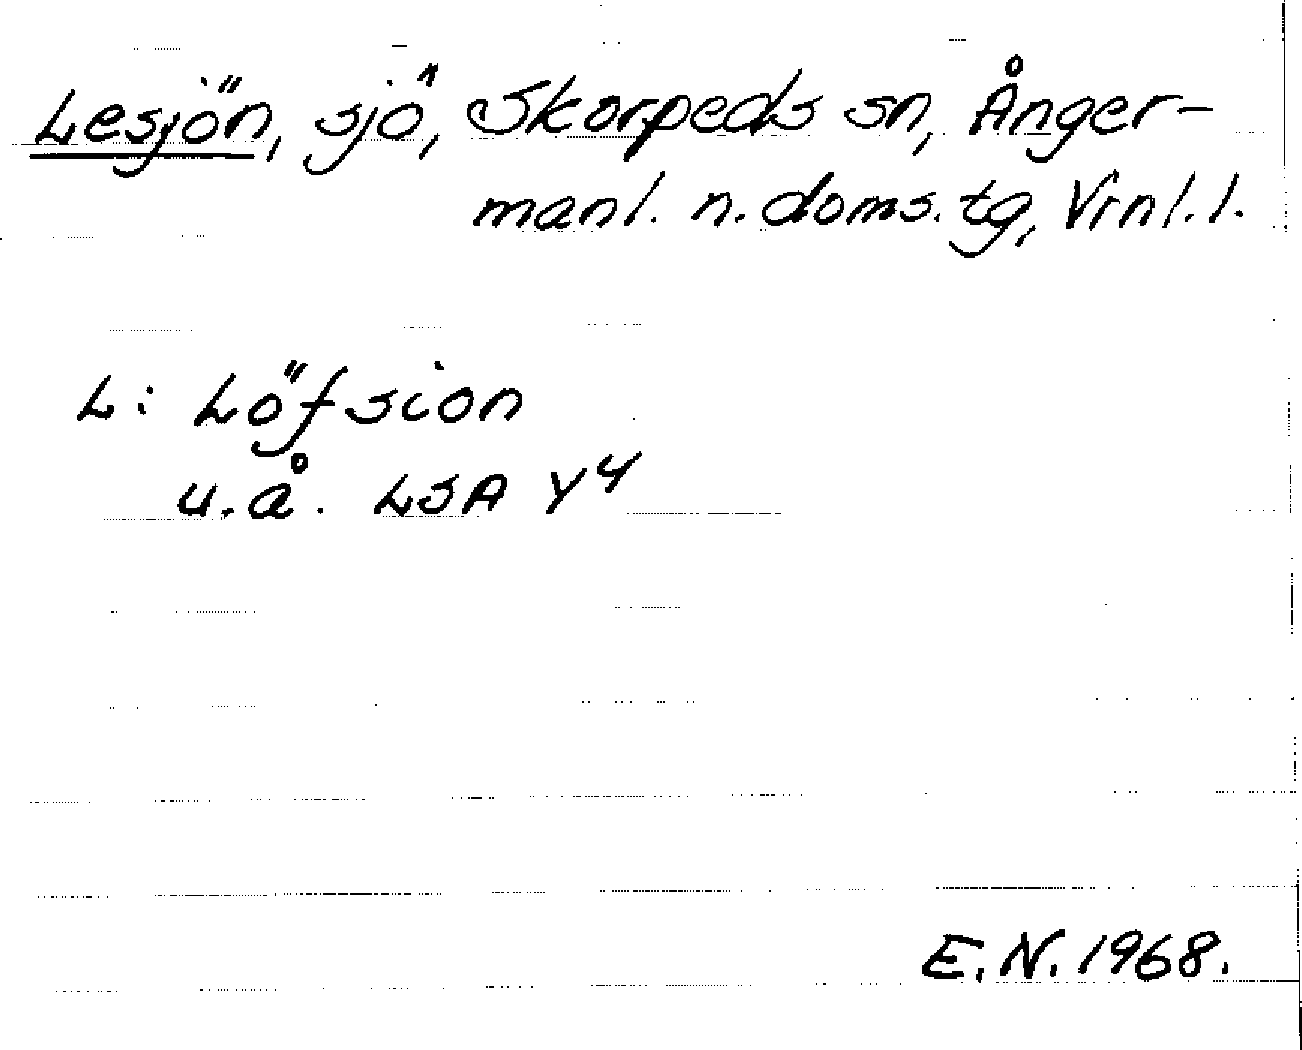 Lesjön, sjö, Skorpeds sn, Ånger-
manl. n. doms. tg, Vrnl. l.
L: Löfsion
u.å. LSA Y4
E.N. 1968.